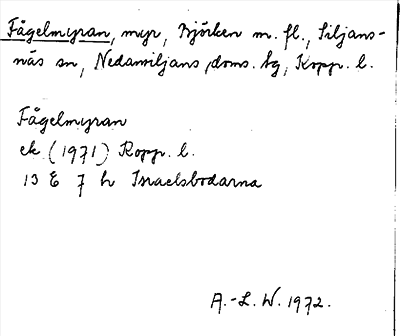 Fågelmyran, myr, Björken m. fl., Siljans-
näs sn, Nedansiljans doms. tg, Kopp. l.
Fågelmyran
ek (1971) Kopp. l.
13 E 7 h Israelsbodarna
A.-L. W. 1972.